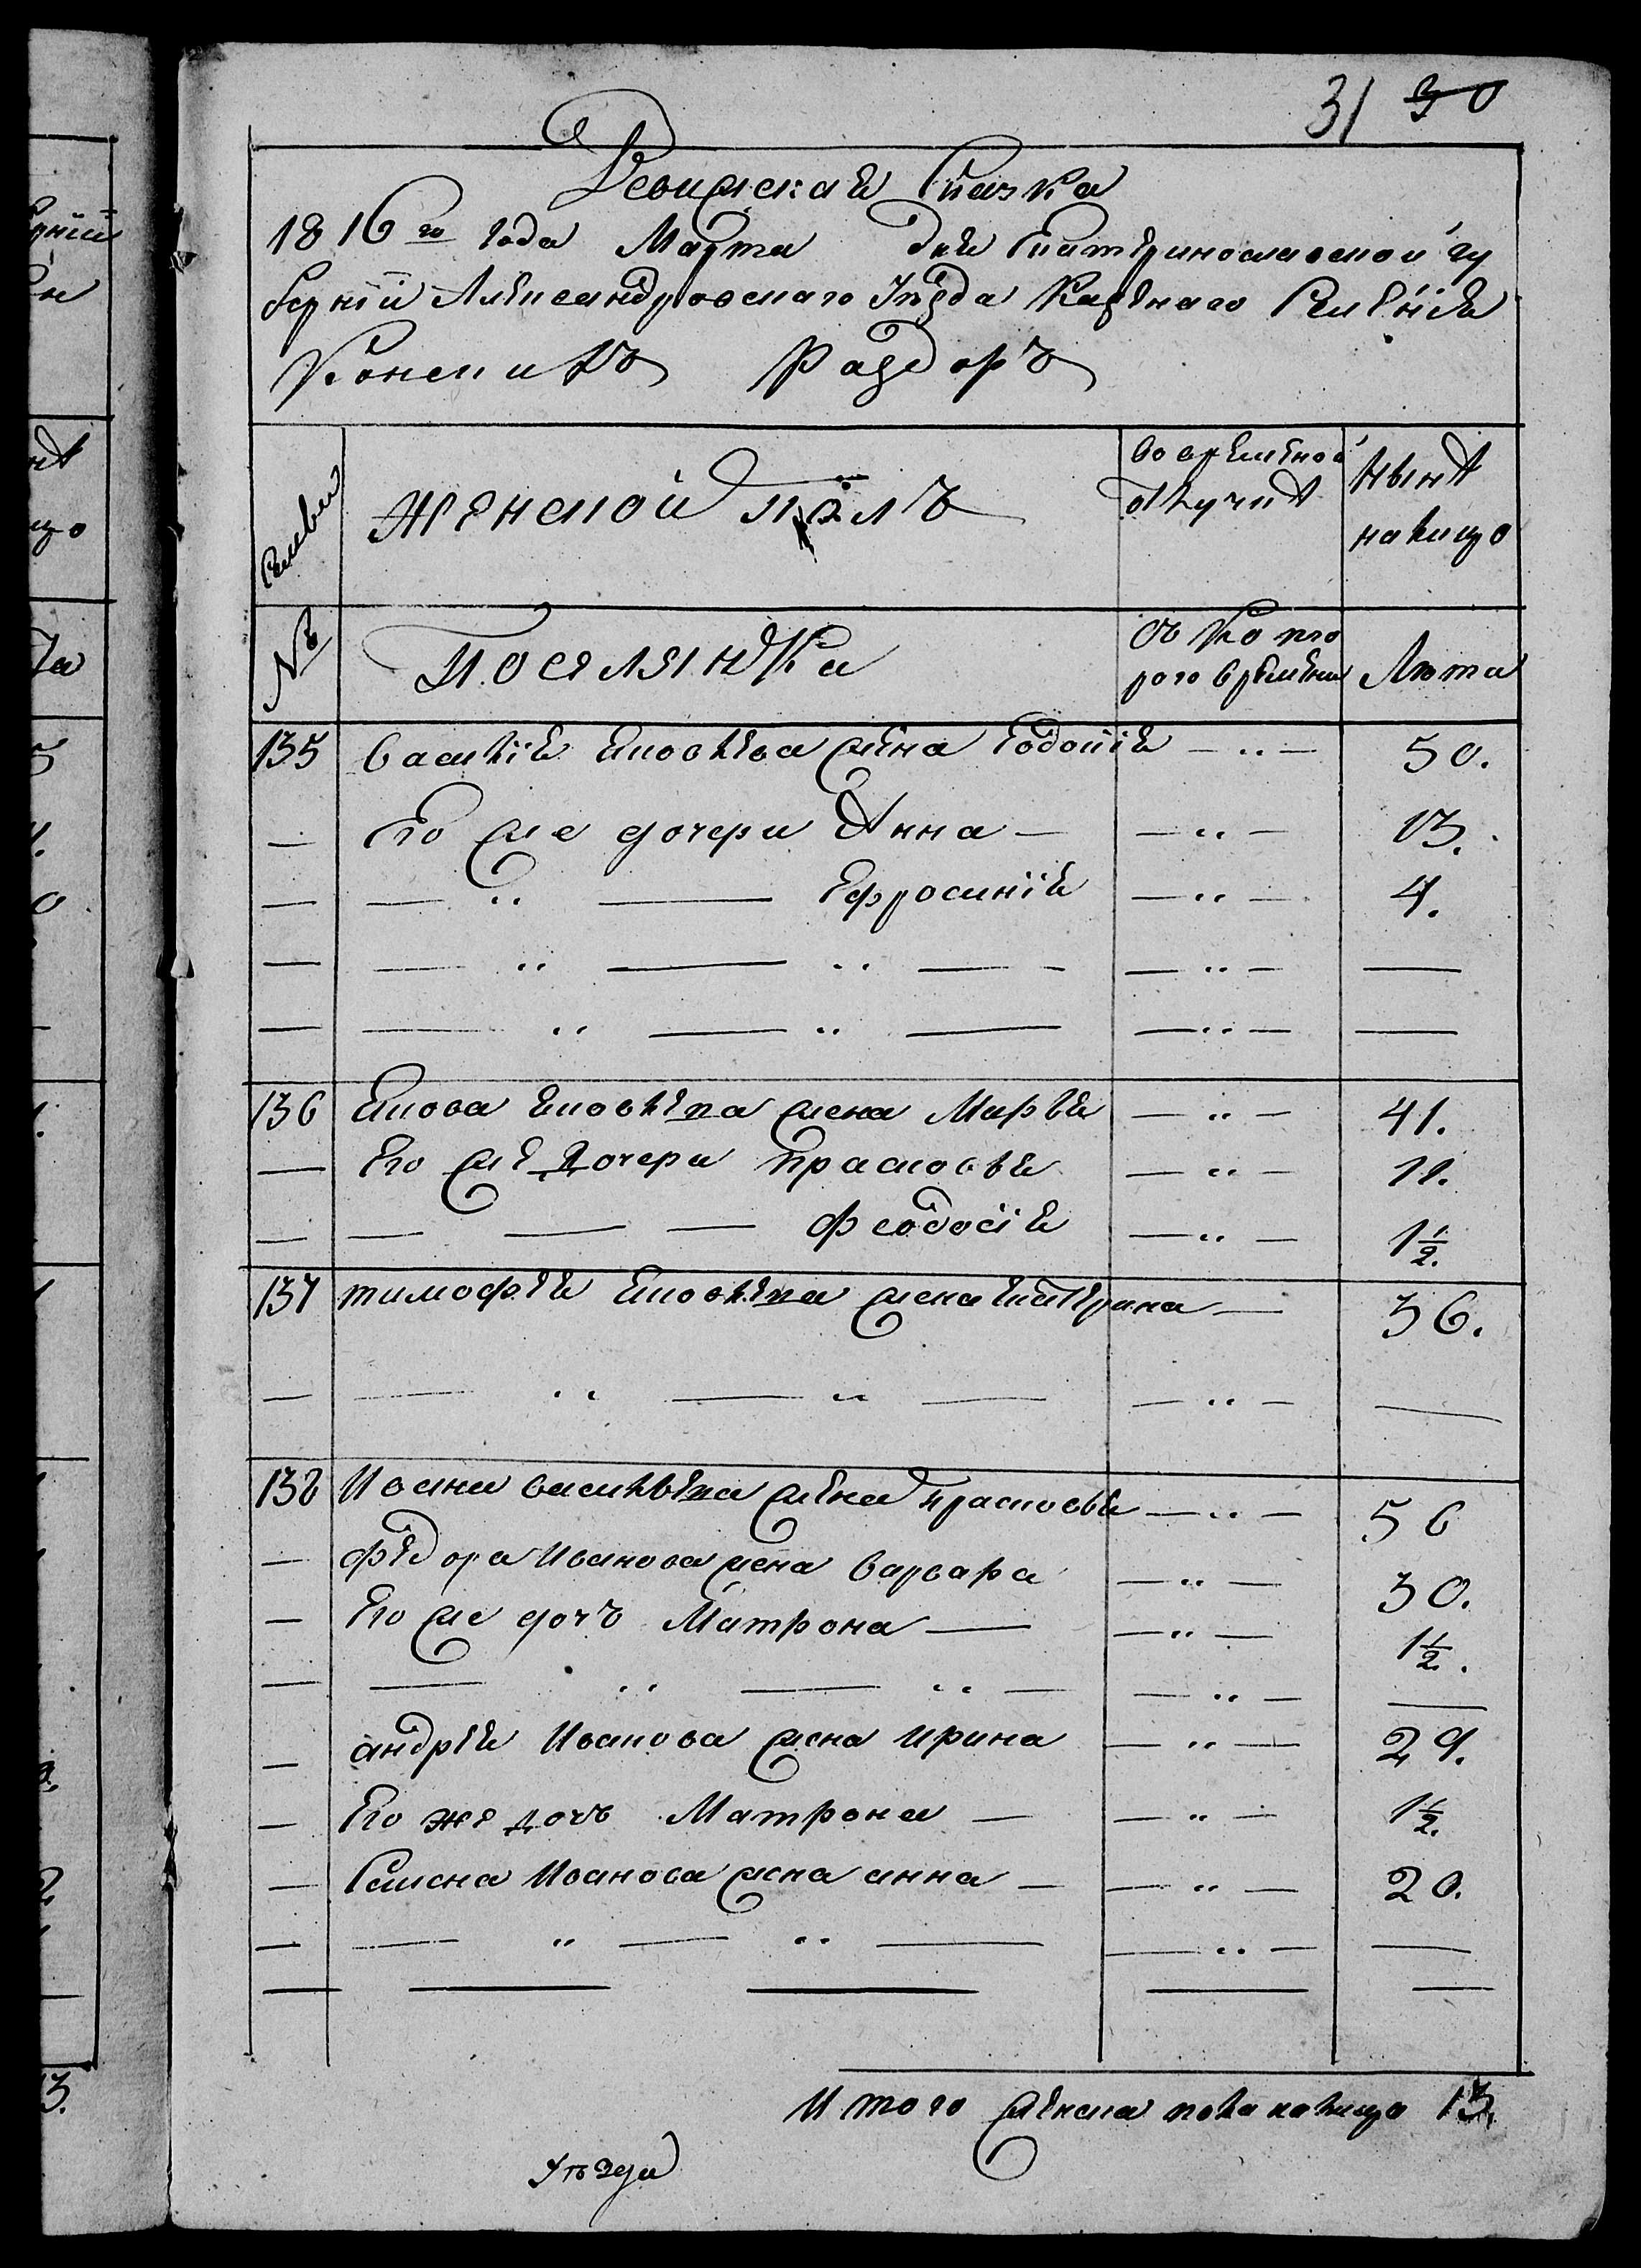 31 30
Ревижская Сказка
1816го года Марта дня Екатеринославской гу
берніи Александровскаго Уезда Казеннаго Селенія
Конскихъ Раздоръ
Семьи
женской полъ
во временной
отлучке
ныне
налицо
№
Поселянка
съ кото
рого времени
Лѣта
135 Василія Яковлева жена Евдокія — „ — 50.
— Его же дочери Анна — — „ — 13.
— — „ — Ефросинія — „ — 4.
— — „ — „ — — — „ — —
— — „ — „ — — „ — —
136 Якова Яковлева жена Марья — „ — 41.
— Его же дочери Прасковья — „ — 11.
— — — — Феодосія — „ — 1½.
137 Тимофея Яковлева жена Екатерина — 36.
— — „ — „ — — „ — —
138 Ивана Васильева жена Прасковья — „ — 56
— Федора Иванова жена Варвара — „ — 30.
— Его же дочь Матрона — — „ — 1½.
— — „ — „ — — „ — —
— Андрея Иванова жена Ирина — „ — 29.
— Его же дочь Матрона — — „ — 1½.
— Семена Иванова жена Анна — — „ — 20.
— — „ — „ — — „ — —
— — — — —
Итого женска пола налицо 13.
Уезда